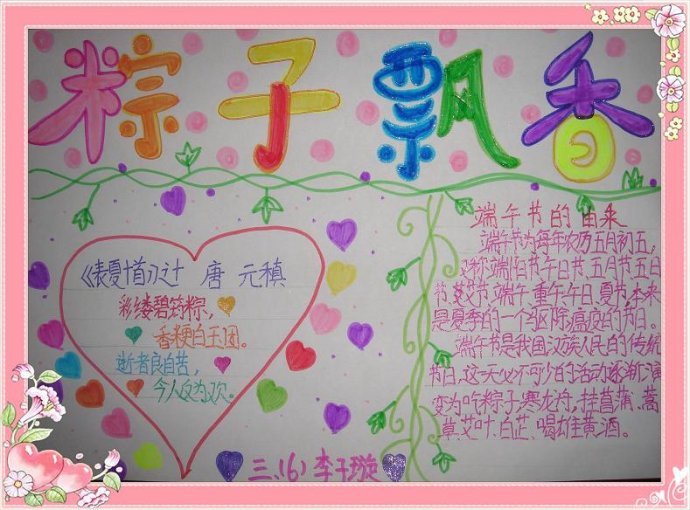 粽子飘香
《表夏十首》之十 唐 元稹
彩缕碧筠粽，
香粳白玉团。
逝者良自苦，
今人反为欢。
端午节的由来
端午节为每年农历五月初五，
又称端阳节、午日节、五月节、五日
节、艾节、端午、重午、午日、夏节，本来
是夏季的一个驱除瘟疫的节日。
端午节是我国汉族人民的传统
节日，这一天必不可少的活动逐渐演
变为吃粽子、赛龙舟，挂菖蒲、蒿
草、艾叶、白芷、喝雄黄酒。
三、(6) 李子璇